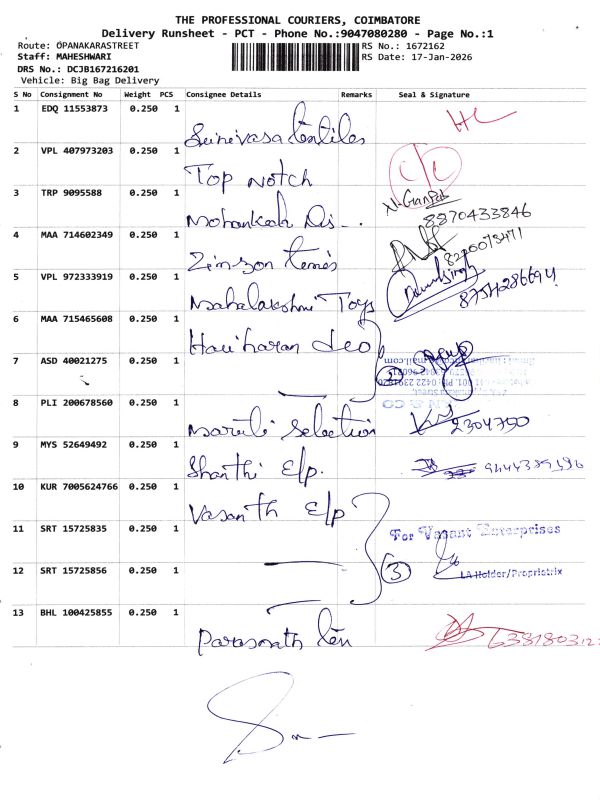 THE PROFESSIONAL COURIERS, COIMBATORE
Delivery Runsheet - PCT - Phone No.:9047080280 - Page No.:1
Route: OPANAKARASTREET
RS No.: 1672162
Staff: MAHESHWARI
RS Date: 17-Jan-2026
DRS No.: DCJB167216201
Vehicle: Big Bag Delivery
S No Consignment No Weight PCS Consignee Details Remarks Seal & Signature
1 EDQ 11553873 0.250 1 Srinivasa
2 VPL 407973203 0.250 1 Top Notch
3 TRP 9095588 0.250 1 N. Ganpat
8870433846
4 MAA 714602349 0.250 1
5 VPL 972333919 0.250 1 Mahalakshmi Toys
8754286694
6 MAA 715465608 0.250 1 Hariharan
7 ASD 40021275 0.250 1 2
8 PLI 200678560 0.250 1 Maruti Selection 2304750
& CO
9 MYS 52649492 0.250 1 Shanthi E/p.
10 KUR 7005624766 0.250 1 Vasanth E/p
11 SRT 15725835 0.250 1 For Vasant Enterprises
12 SRT 15725856 0.250 1 3
LA Holder/Proprietrix
13 BHL 100425855 0.250 1